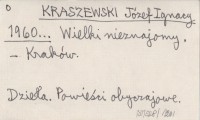 KRASZEWSKI Józef Ignacy.
1960... Wielki nieznajomy.
– Kraków.
Dzieła. Powieści obyczajowe.